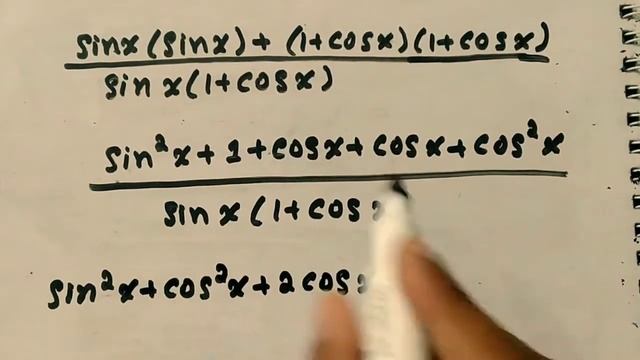 sinx(sinx)+(1+cosx)(1+cosx)
sinx(1+cosx)
sin²x+1+cosx+cosx+cos²x
sinx(1+cos
sin²x+cos²x+2cos